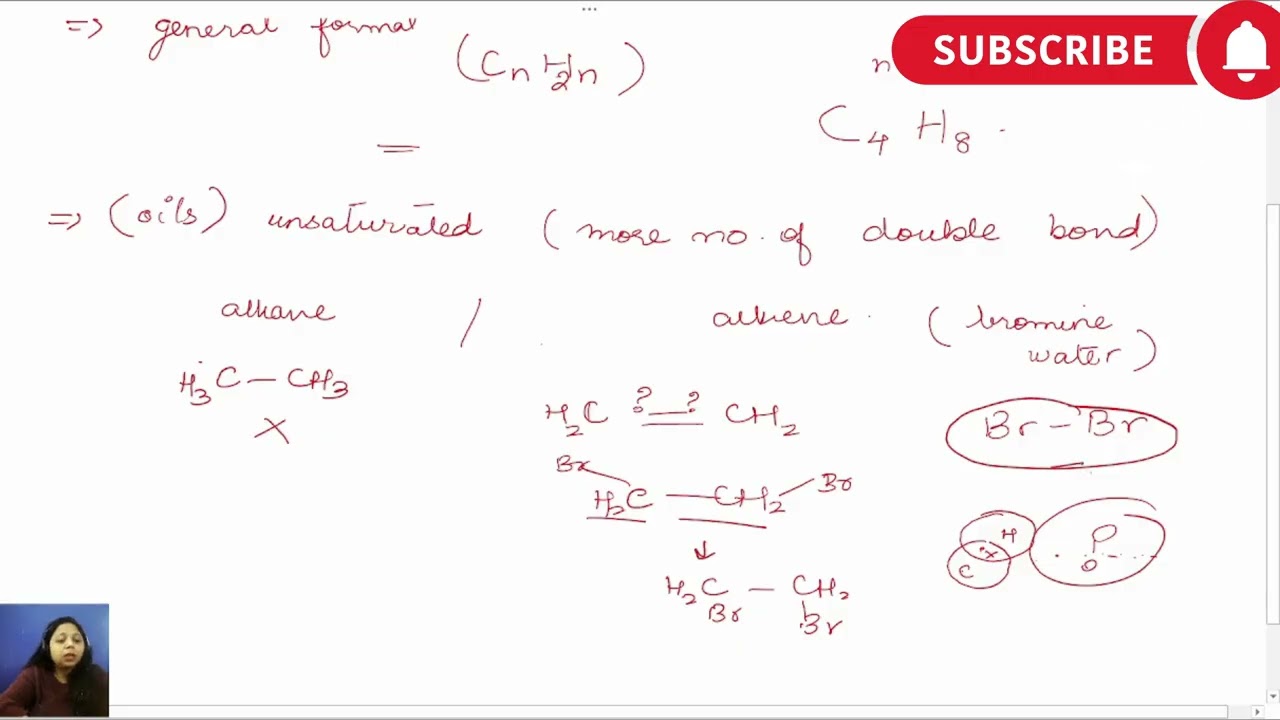 ⇒ general format
(CnH2n)
n
SUBSCRIBE
C4H8.
⇒ (oils) unsaturated (more no. of double bond)
alkane / alkene. (bromine water)
H3C — CH3
X
H2C ? = ? CH2
Br — Br
Br Br
H2C — CH2
↓
H2C — CH2
Br Br
H
C x
O